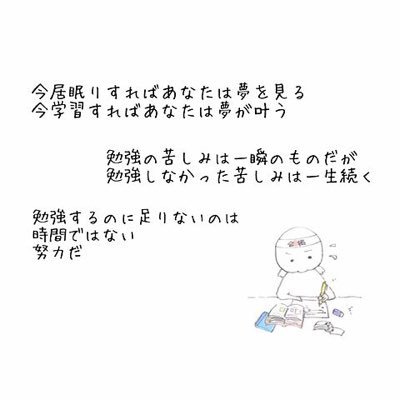 今居眠りすればあなたは夢を見る
今学習すればあなたは夢が叶う
勉強の苦しみは一瞬のものだが
勉強しなかった苦しみは一生続く
勉強するのに足りないのは
時間ではない
努力だ